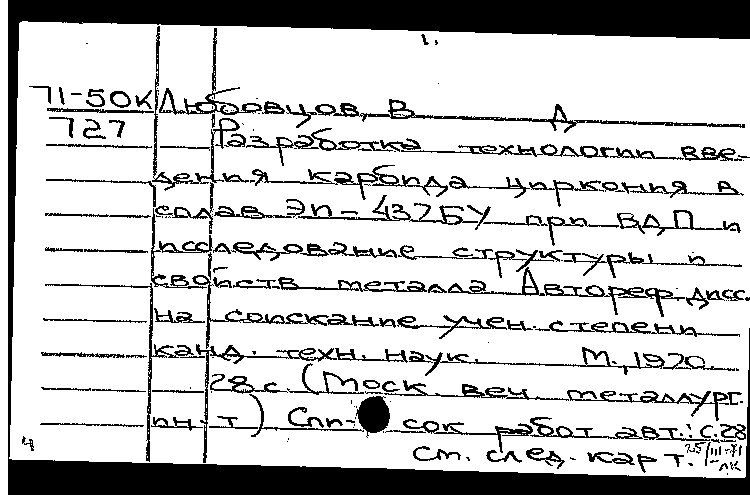 1.
71-50К Любовцов, В Д
727 Разработка технологии вве-
дения карбида циркония в
сплав ЭП-437БУ при ВДП и
исследование структуры и
свойств металла. Автореф. дисс.
на соискание учен. степени
канд. техн. наук. М., 1970.
28 с. (Моск. веч. металлург.
ин-т) Спи- сок работ авт.: с. 28
ч ст. след. карт. 25/III-71